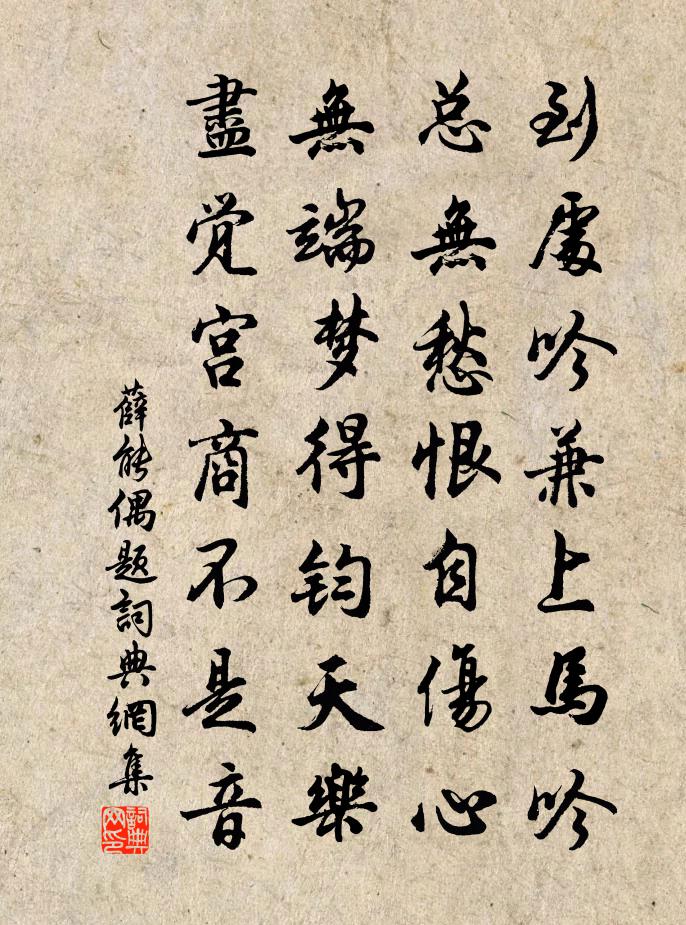 到處吟兼上馬吟
总無愁恨自傷心
無端梦得鈞天樂
盡觉宮商不是音
薛能偶题詞典網集
詞典网印